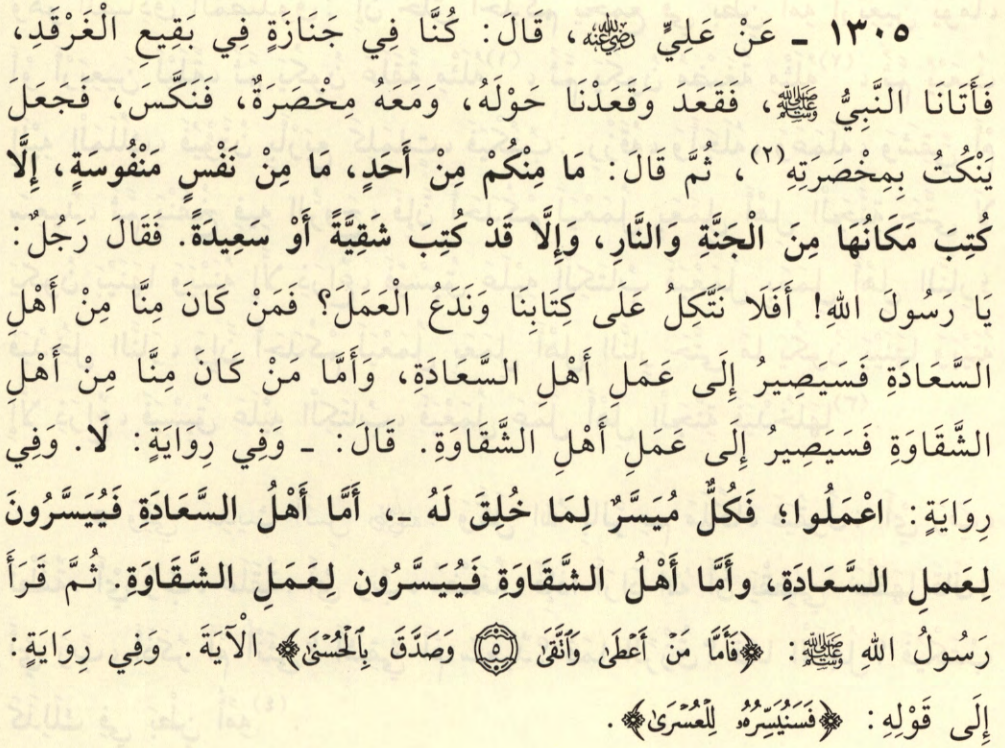 ١٣٠٥ ـ عَنْ عَلِيٍّ رضي الله عنه، قَالَ: كُنَّا فِي جَنَازَةٍ فِي بَقِيعِ الْغَرْقَدِ،
فَأَتَانَا النَّبِيُّ ﷺ، فَقَعَدَ وَقَعَدْنَا حَوْلَهُ، وَمَعَهُ مِخْصَرَةٌ، فَنَكَّسَ، فَجَعَلَ
يَنْكُتُ بِمِخْصَرَتِهِ(٢)، ثُمَّ قَالَ: مَا مِنْكُمْ مِنْ أَحَدٍ، مَا مِنْ نَفْسٍ مَنْفُوسَةٍ، إِلَّا
كُتِبَ مَكَانُهَا مِنَ الْجَنَّةِ وَالنَّارِ، وَإِلَّا قَدْ كُتِبَ شَقِيَّةً أَوْ سَعِيدَةً. فَقَالَ رَجُلٌ:
يَا رَسُولَ اللهِ! أَفَلَا نَتَّكِلُ عَلَى كِتَابِنَا وَنَدَعُ الْعَمَلَ؟ فَمَنْ كَانَ مِنَّا مِنْ أَهْلِ
السَّعَادَةِ فَسَيَصِيرُ إِلَى عَمَلِ أَهْلِ السَّعَادَةِ، وَأَمَّا مَنْ كَانَ مِنَّا مِنْ أَهْلِ
الشَّقَاوَةِ فَسَيَصِيرُ إِلَى عَمَلِ أَهْلِ الشَّقَاوَةِ. قَالَ: ـ وَفِي رِوَايَةٍ: لَا. وَفِي
رِوَايَةٍ: اعْمَلُوا؛ فَكُلٌّ مُيَسَّرٌ لِمَا خُلِقَ لَهُ ـ، أَمَّا أَهْلُ السَّعَادَةِ فَيُيَسَّرُونَ
لِعَملِ السَّعَادَةِ، وأَمَّا أَهْلُ الشَّقَاوَةِ فَيُيَسَّرُون لِعَمَلِ الشَّقَاوَةِ. ثُمَّ قَرَأَ
رَسُولُ اللهِ ﷺ: ﴿فَأَمَّا مَنْ أَعْطَىٰ وَٱتَّقَىٰ ٥ وَصَدَّقَ بِٱلْحُسْنَىٰ﴾ الْآيَةَ. وَفِي رِوَايَةٍ:
إِلَى قَوْلِهِ: ﴿فَسَنُيَسِّرُهُۥ لِلْعُسْرَىٰ﴾.